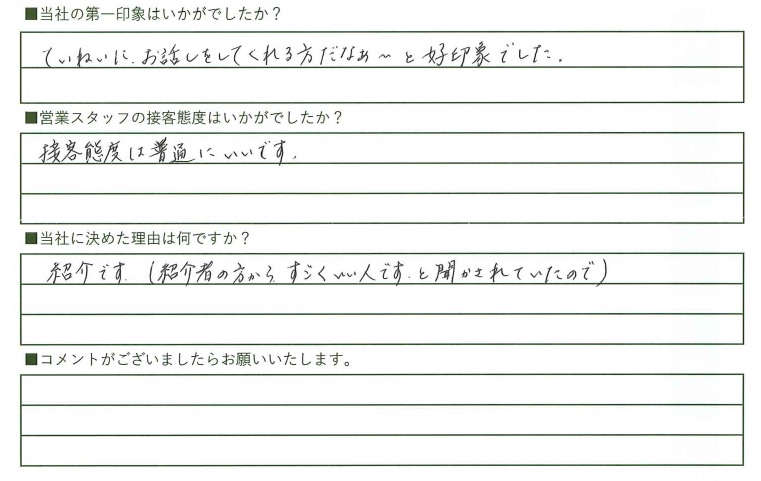 ■当社の第一印象はいかがでしたか？
ていねいに、お話しをしてくれる方だなぁ〜と好印象でした。
■営業スタッフの接客態度はいかがでしたか？
接客態度は普通にいいです。
■当社に決めた理由は何ですか？
紹介です。(紹介者の方から、すごくいい人です。と聞かされていたので)
■コメントがございましたらお願いいたします。